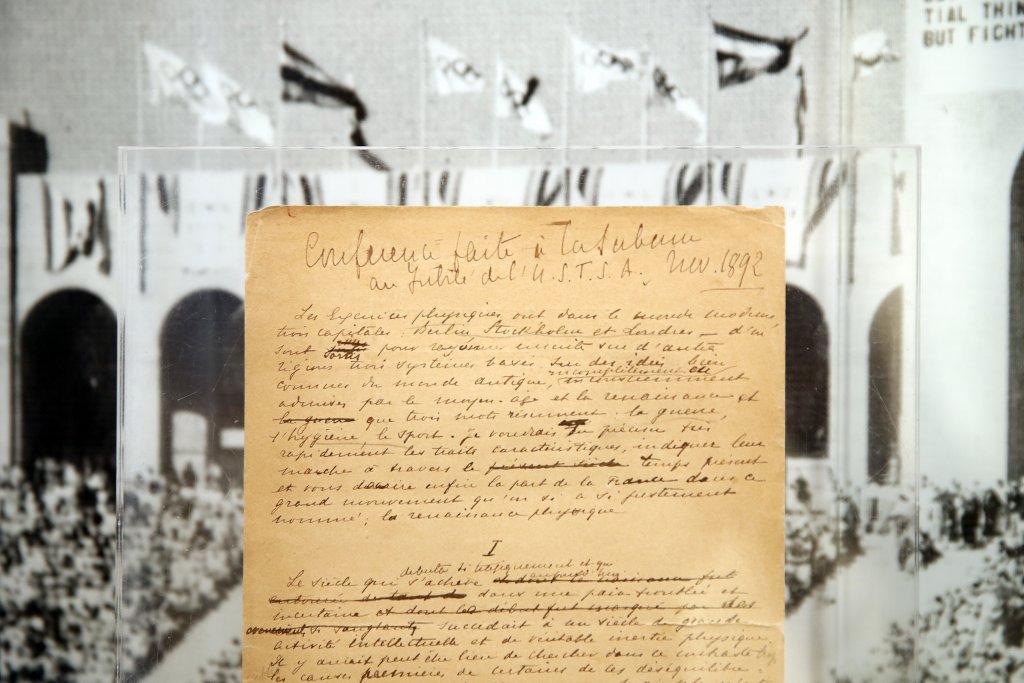 TIAL THIN
BUT FIGHT
Conférence faite à la Sorbonne
au Jubilé de l'U.S.F.S.A. Nov. 1892
Les Exercices physiques ont dans le monde moderne
trois capitales : Berlin, Stockholm et Londres — d'où
sont sortis pour rayonner ensuite sur d'autres
régions trois systèmes basés sur des idées bien
incomplètement ou
connues du monde antique, inconsciemment
admises par le moyen-âge et la renaissance et
la guerre que trois mots résument : la guerre,
l'hygiène, le sport. Je voudrais en préciser très
rapidement les traits caractéristiques, indiquer leur
marche à travers le présent siècle temps présent
et vous décrire enfin la part de la France dans ce
grand mouvement qu'on a si justement
nommé : la renaissance physique
I
débuta si tragiquement et qui
Le siècle qui s'achève
dans une paix troublée et
incertaine et dont le début fut marqué par des
événements si sanglants succédait à un siècle de grande
activité intellectuelle et de véritable inertie physique
Il y aurait peut-être lieu de chercher dans ce contraste
les causes premières de certains de ces déséquilibre